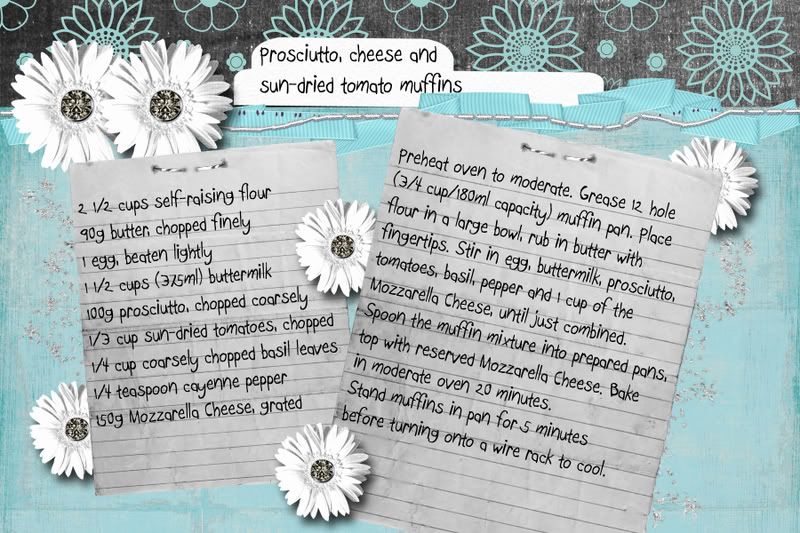 Prosciutto, cheese and
sun-dried tomato muffins
2 1/2 cups self-raising flour
90g butter, chopped finely
1 egg, beaten lightly
1 1/2 cups (375ml) buttermilk
100g prosciutto, chopped coarsely
1/3 cup sun-dried tomatoes, chopped
1/4 cup coarsely chopped basil leaves
1/4 teaspoon cayenne pepper
150g Mozzarella Cheese, grated
Preheat oven to moderate. Grease 12 hole
(3/4 cup/180ml capacity) muffin pan. Place
flour in a large bowl, rub in butter with
fingertips. Stir in egg, buttermilk, prosciutto,
tomatoes, basil, pepper and 1 cup of the
Mozzarella Cheese, until just combined.
Spoon the muffin mixture into prepared pans,
top with reserved Mozzarella Cheese. Bake
in moderate oven 20 minutes.
Stand muffins in pan for 5 minutes
before turning onto a wire rack to cool.